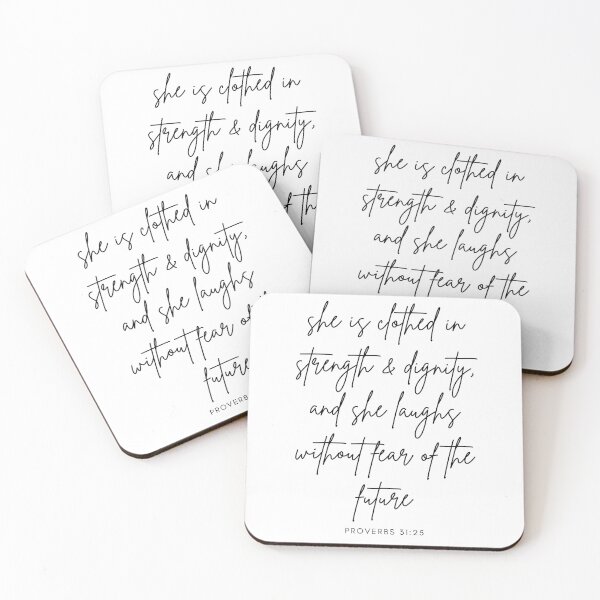 she is clothed in
strength & dignity,
and she laughs
of th
she is clothed in
strength & dignity,
and she laughs
without fear of the
she is clothed in
strength & dignity,
and she laughs
without fear of
future
PROVERB
she is clothed in
strength & dignity,
and she laughs
without fear of the
future
PROVERBS 31:25